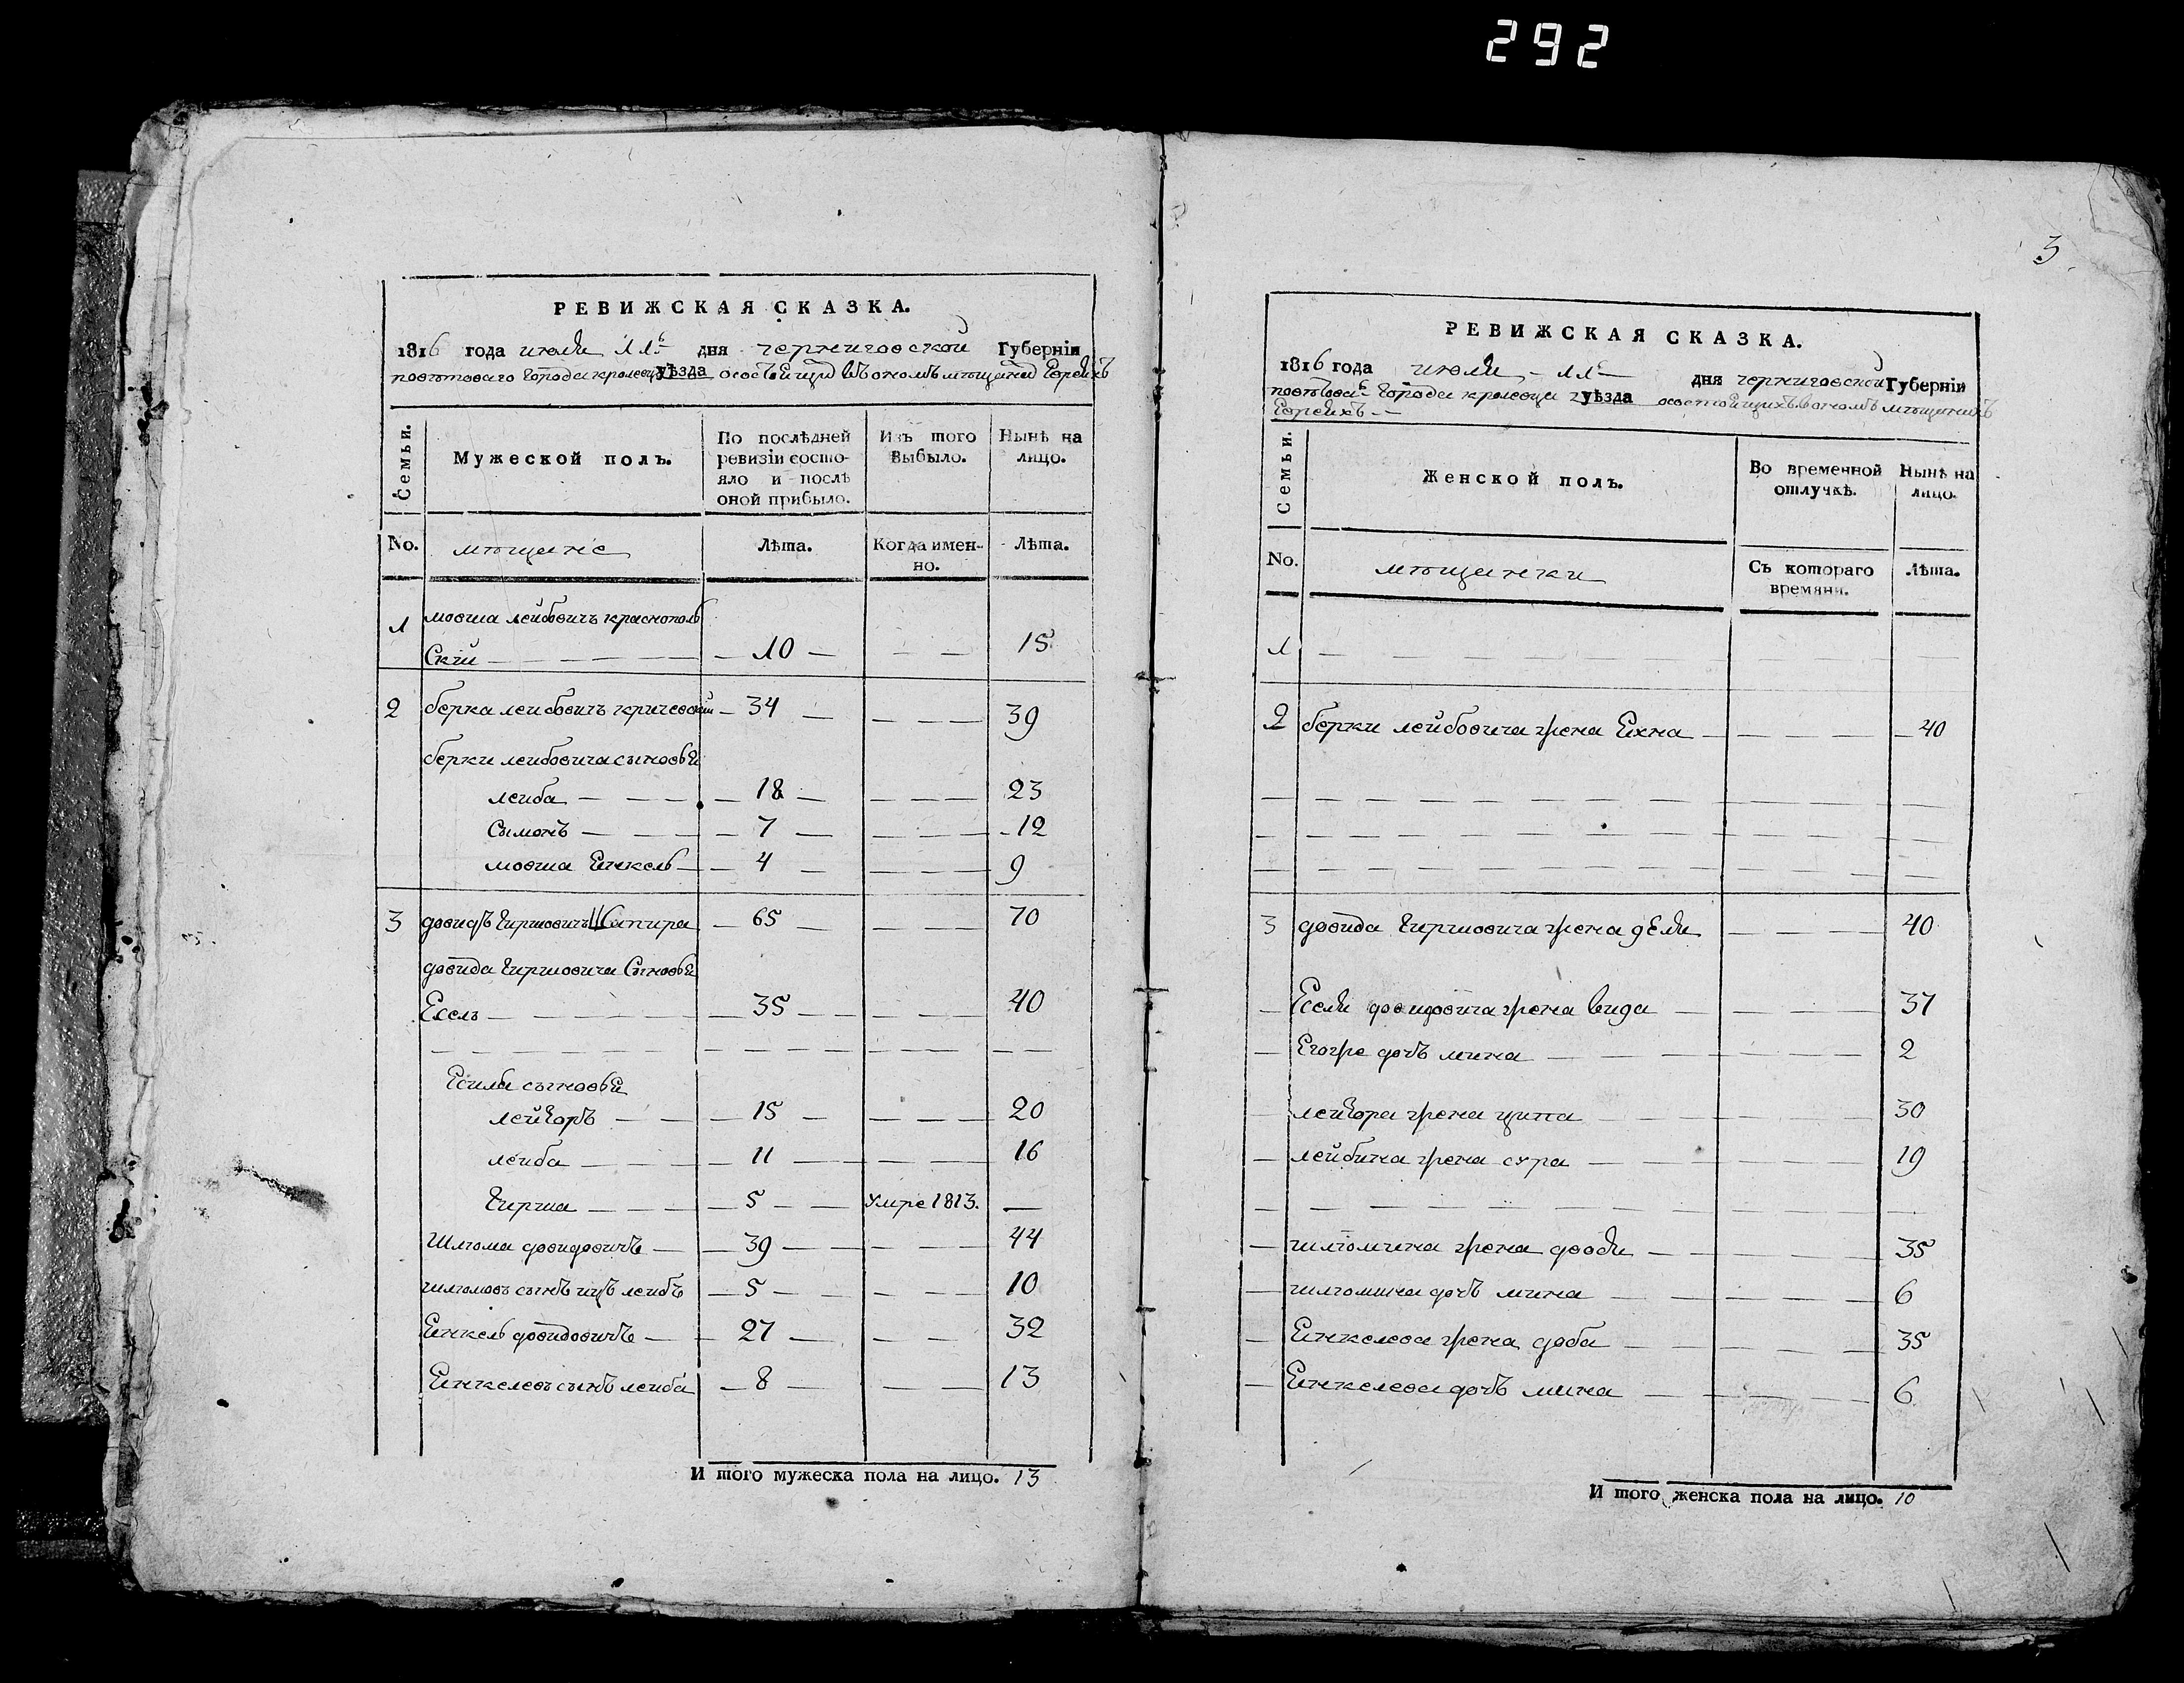 292
3
РЕВИЖСКАЯ СКАЗКА.
1816 года июля 11 дня черниговской Губерніи
поветоваго города кролевца уѣзда о состоящих въ ономъ мѣщанех Евреихъ
Семьи.
Мужеской полъ.
По послѣдней ревизіи состо-
яло и послѣ
оной прибыло.
Изъ того
выбыло.
Нынѣ на
лицо.
No. мѣщане Лѣта. Когда имен-
но. Лѣта.
1 мовша лейбовичъ краснополь
ский — 10 — — — 15
2 берка леибовичъ кричевский — 34 — — — — 39
берки леибовича сыновья
леиба — — — 18 — — — — 23
Сымонъ — — — 7 — — — — 12
мовша Енкель — — 4 — — — — 9
3 довидъ гиршовичъ Шапира — 65 — — — — 70
довида гиршовича Сыновья
Есель — — — — 35 — — — — 40
Есиля сыновья
лейзоръ — — — 15 — — — — 20
леиба — — — 11 — — — — 16
гирша — — — 5 — — умре 1813. —
Шлиома довидовичъ — — 39 — — — — 44
шлиомовъ сынъ ицъ леибъ — 5 — — — — 10
Еинкель довидовичъ — — 27 — — — 32
Еинкелевъ сынъ леиба — 8 — — — 13
И того мужеска пола на лицо. 13
РЕВИЖСКАЯ СКАЗКА.
1816 года июля 11 дня черниговской Губерніи
поветоваго города кролевца уѣзда о состоящихъ в ономъ мѣщанехъ
Евреихъ —
Семьи.
Женской полъ.
Во временной
отлучкѣ.
Нынѣ на
лицо.
No. мѣщанки Съ котораго
времяни. Лѣта.
1 — — — —
2 берки лейбовича жена Ехна — — — — 40
3 довида гиршовича жена деля — — — 40
— Есели довидовича жена вида — — — 37
— Егоже дочъ мина — — — 2
лейзора жена ципа — — — 30
— лейбина жена сура — — — 19
— шлиомина жена двоеля — — — 35
— шлиомина дочъ мина — — — 6
— Еинкелева жена доба — — — 35
— Еинкелева дочъ мина — — — 6
И того женска пола на лицо. 10